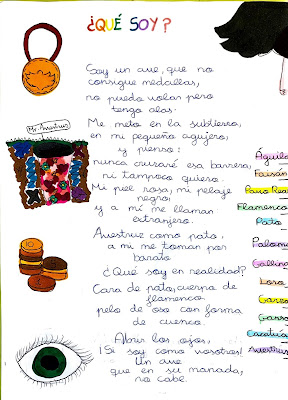 ¿QUÉ SOY?
Soy un ave, que no
consigue medallas,
no puedo volar pero
tengo alas.
Me meto en la subtierra,
en mi pequeño agujero,
y pienso:
nunca cruzaré esa barrera,
ni tampoco quiero.
Mi piel rosa, mi pelaje
negro,
y a mí me llaman
extranjero.
Avestruz como pato,
a mi me toman por
barato
¿Qué soy en realidad?
Cara de pato, cuerpo de
flamenco
pelo de oso con forma
de cuenco.
Abrir los ojos,
¡Si soy como vosotros!
Un ave
que en su manada,
no cabe.
Mr. Avestruz
Águila
Faisán
Pavo Rea
Flamenco
Pato
Palom
Gallina
Loro
Cacatúa
Avestruz